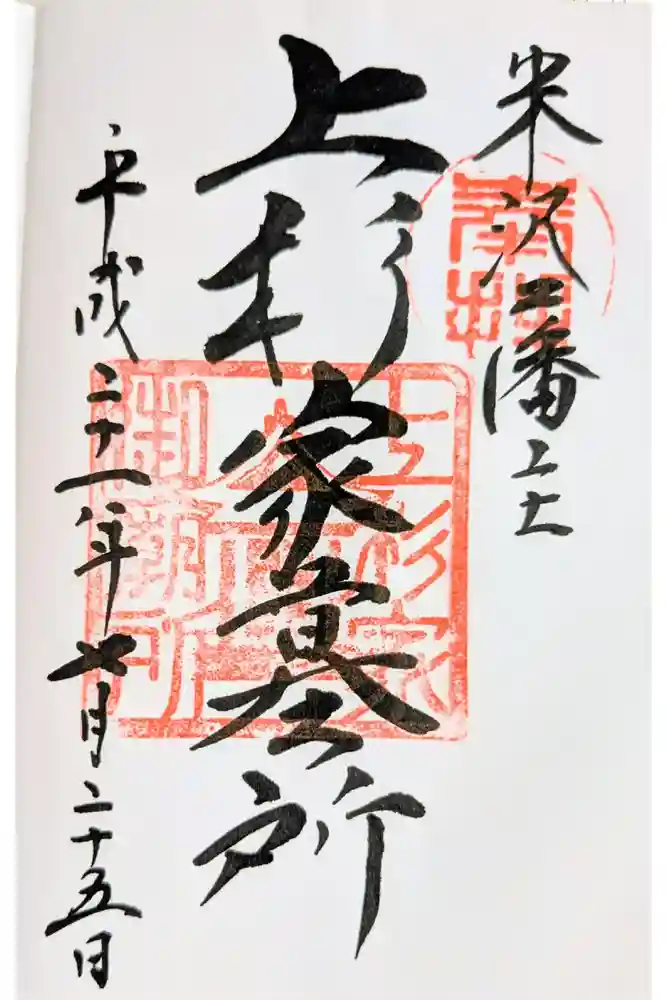 米沢藩主
奉拝
上杉家墓所
上杉家
御廟所
平成二十八年七月二十五日